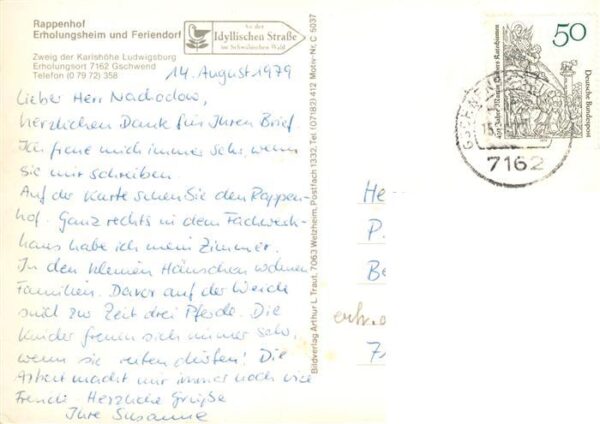 Rappenhof
Erholungsheim und Feriendorf
An der
Idyllischen Straße
im Schwäbischen Wald
Zweig der Karlshöhe Ludwigsburg
Erholungsort 7162 Gschwend
Telefon (0 79 72) 358
14. August 1979
Lieber Herr Nachodow,
herzlichen Dank für Ihren Brief.
Ich freue mich immer sehr, wenn
sie mir schreiben.
Auf der Karte sehen Sie den Rappen-
hof. Ganz rechts in dem Fachwerk-
haus habe ich mein Zimmer.
In den kleinen Häuschen wohnen
Familien. Davor auf der Weide
sind zur Zeit drei Pferde. Die
Kinder freuen sich immer sehr,
wenn sie reiten dürfen! Die
Arbeit macht mir immer noch viel
Freude. Herzliche Grüße
Ihre Susanne
Bildverlag Arthur L. Traut, 7063 Welzheim, Postfach 1332, Tel. (07182) 412 Motiv-Nr. C 5037
50
450 Jahre Martin Luthers Katechismen
Deutsche Bundespost
7162
He
P.
Be
7